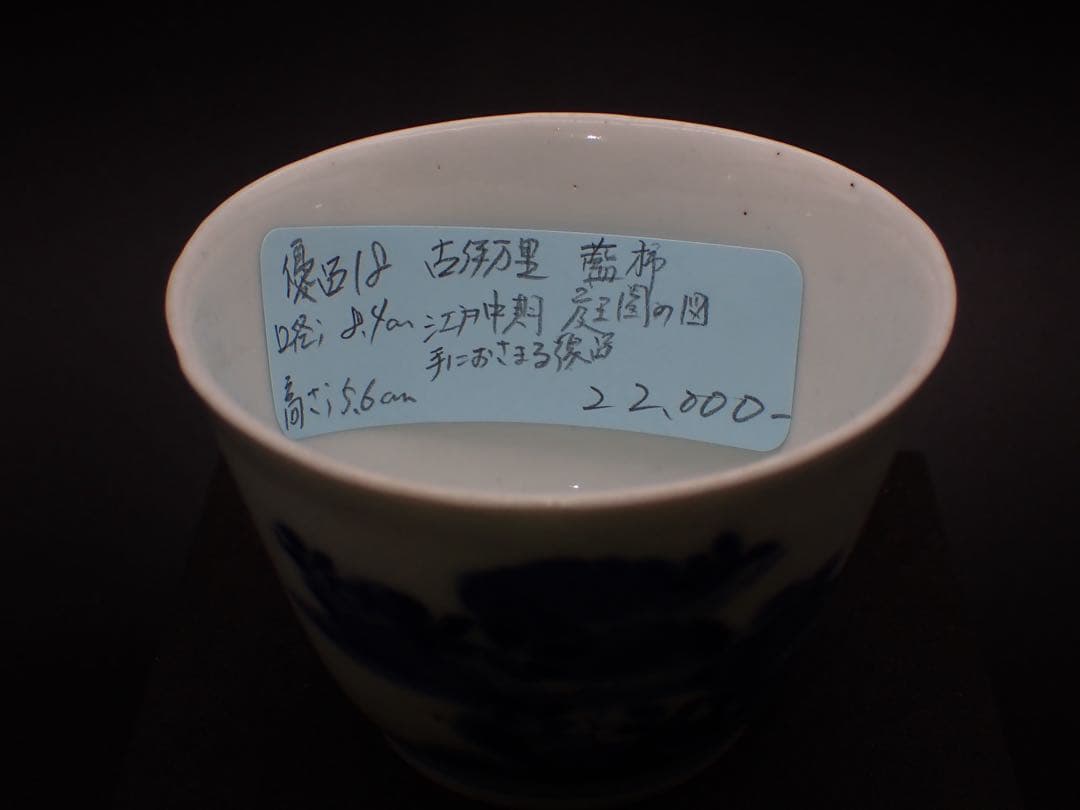 優品18 古伊万里 藍柿
口径; 8.4cm 江戸中期 庭園の図
手におさまる優品
高さ; 5.6cm 22,000-